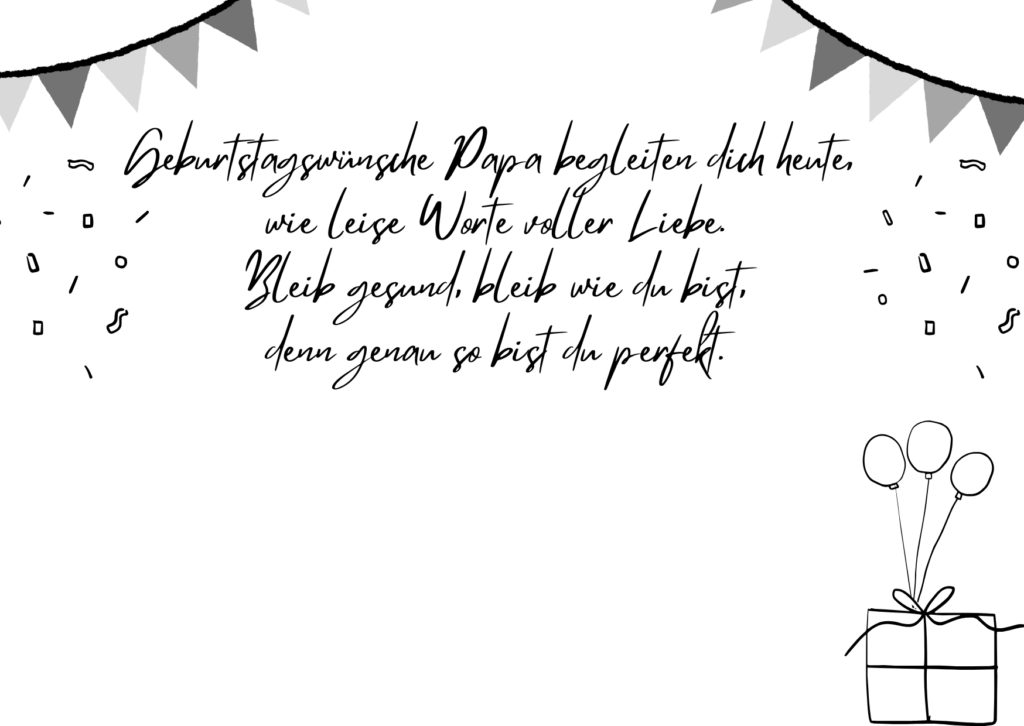 Geburtstagswünsche Papa begleiten dich heute,
wie leise Worte voller Liebe.
Bleib gesund, bleib wie du bist,
denn genau so bist du perfekt.